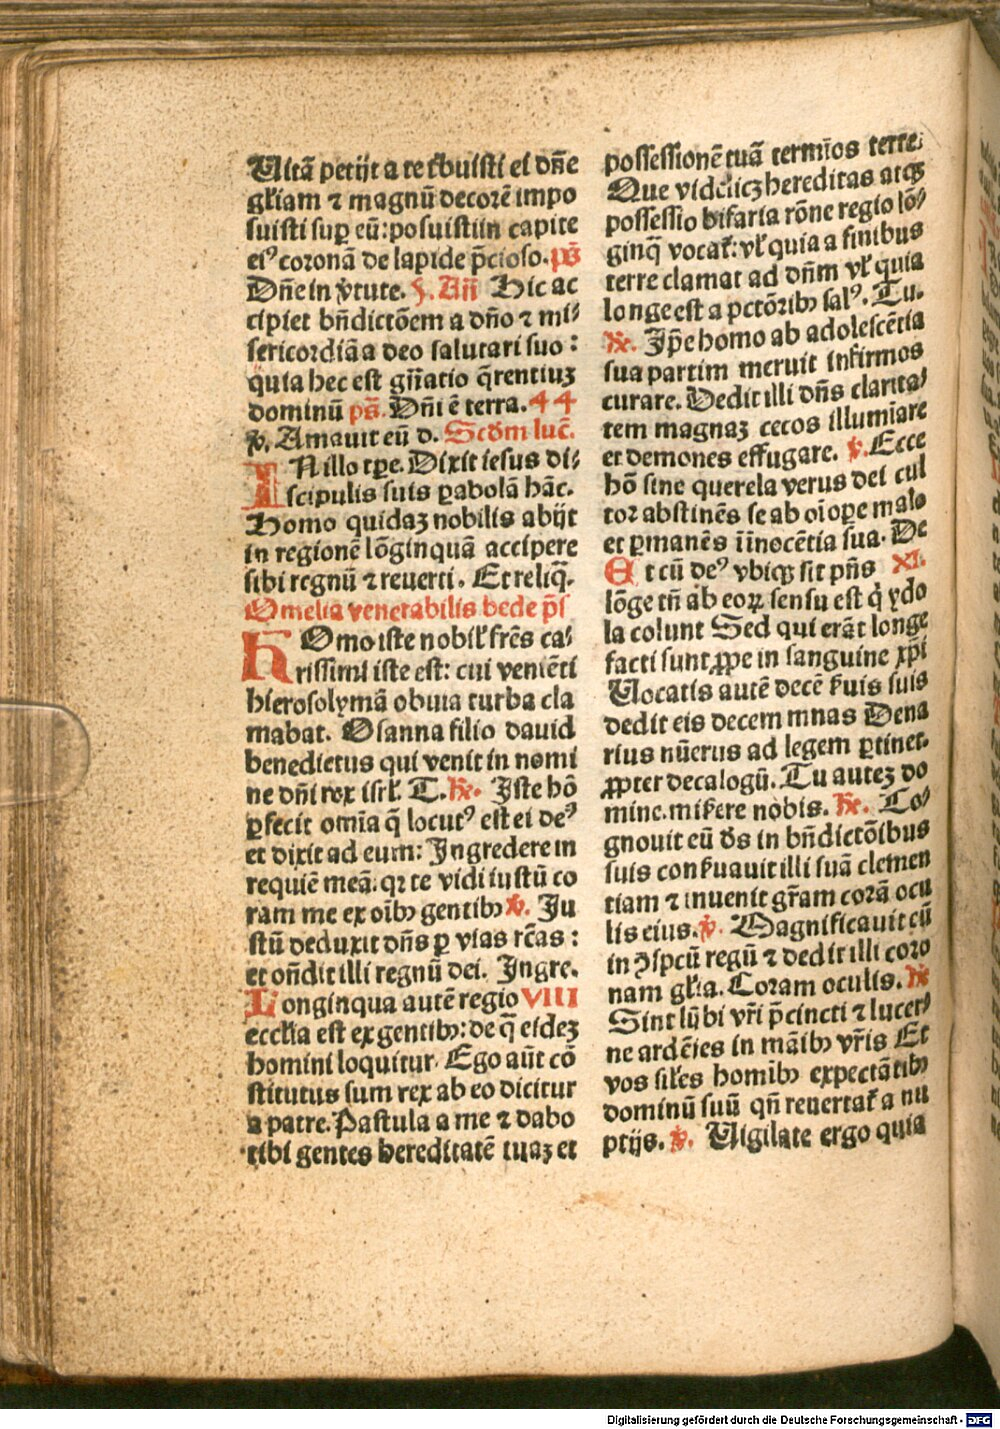 Uitā petijt a te t̾buisti ei dn̄e
gl̄iam ⁊ magnū decorē impo
suisti suꝑ eū: posuisti in capite
eiꝰ coronā de lapide p̄cioso. ps̄
Dn̄e in v̓tute. ℣. An̄ Hic ac
cipiet bn̄dictōem a dn̄o ⁊ mi⸗
sericordiā a deo salutari suo:
quia hec est gn̄ratio q̄rentiuꝫ
dominū ps̄. Dn̄i ē terra. 44
℣. Amauit eū d. Scd̄m luc̄.
IN illo tꝑe. Dixit iesus di⸗
scipulis suis ꝑabolā hāc.
Homo quidaꝫ nobilis abijt
in regionē lōginquā accipere
sibi regnū ⁊ reuerti. Et reliq̄.
Omelia venerabilis bede p̄s
HOmo iste nobil̓ frēs ca⸗
rissimi iste est: cui veniēti
hierosolymā obuia turba cla
mabat. Osanna filio dauid
benedictus qui venit in nomi
ne dn̄i rex isrl̓. T. ℟. Iste hō
ꝑfecit om̄ia q̄ locutꝰ est ei deꝰ
et dixit ad eum: Ingredere in
requiē meā: qꝛ te vidi iustū co
ram me ex oībꝰ gentibꝰ ℣. Iu
stū deduxit dn̄s ꝑ vias rc̄as:
et on̄dit illi regnū dei. Ingre.
Longinqua autē regio VIII
eccl̄ia est ex gentibꝰ: de q̄ eideꝫ
homini loquitur. Ego aūt cō
stitutus sum rex ab eo dicitur
a patre. Pastula a me ⁊ dabo
tibi gentes hereditatē tuaꝫ et
possessionē tuā termīos terre.
Que videlicꝫ hereditas atqꝫ
possessio bifaria rōne regio lō⸗
ginq̄ vocat̓: vl̓ quia a finibus
terre clamat ad dn̄m vl̓ quia
longe est a pctōribꝰ salꝰ. Tu.
℟. Ip̄e homo ab adolescētia
sua partim meruit infirmos
curare. Dedit illi dn̄s clarita⸗
tem magnaꝫ cecos illumīare
et demones effugare. ℣. Ecce
hō sine querela verus dei cul
tor abstinēs se ab oī oꝑe malo
et ꝑmanēs īnocētia sua. De
Et cū deꝰ vbiqꝫ sit pn̄s XI.
lōge tn̄ ab eoꝝ sensu est q̓ ydo
la colunt Sed qui erāt longe
facti sunt ꝓpe in sanguine xp̄i
Uocatis autē decē s̓uis suis
dedit eis decem mnas Dena
rius nūerus ad legem ꝑtinet.
ꝓpter decalogū. Tu auteꝫ do
mine. mis̓ere nobis. ℟. Co⸗
gnouit eū ds̄ in bn̄dictōibus
suis cons̓uauit illi suā clemen
tiam ⁊ inuenit gr̄am corā ocu
lis eius. ℣. Magnificauit cū
in ꝯspcū regū ⁊ dedit illi coro
nam gl̄ia. Coram oculis. ℟
Sint lūbi vr̄i p̄cincti ⁊ lucer⸗
ne ardētes in māibꝰ vr̄is Et
vos sil̓es homībꝰ expectātibꝰ
dominū suū qn̄ reuertat̓ a nu
ptijs. ℣. Uigilate ergo quia
Digitalisierung gefördert durch die Deutsche Forschungsgemeinschaft - DFG